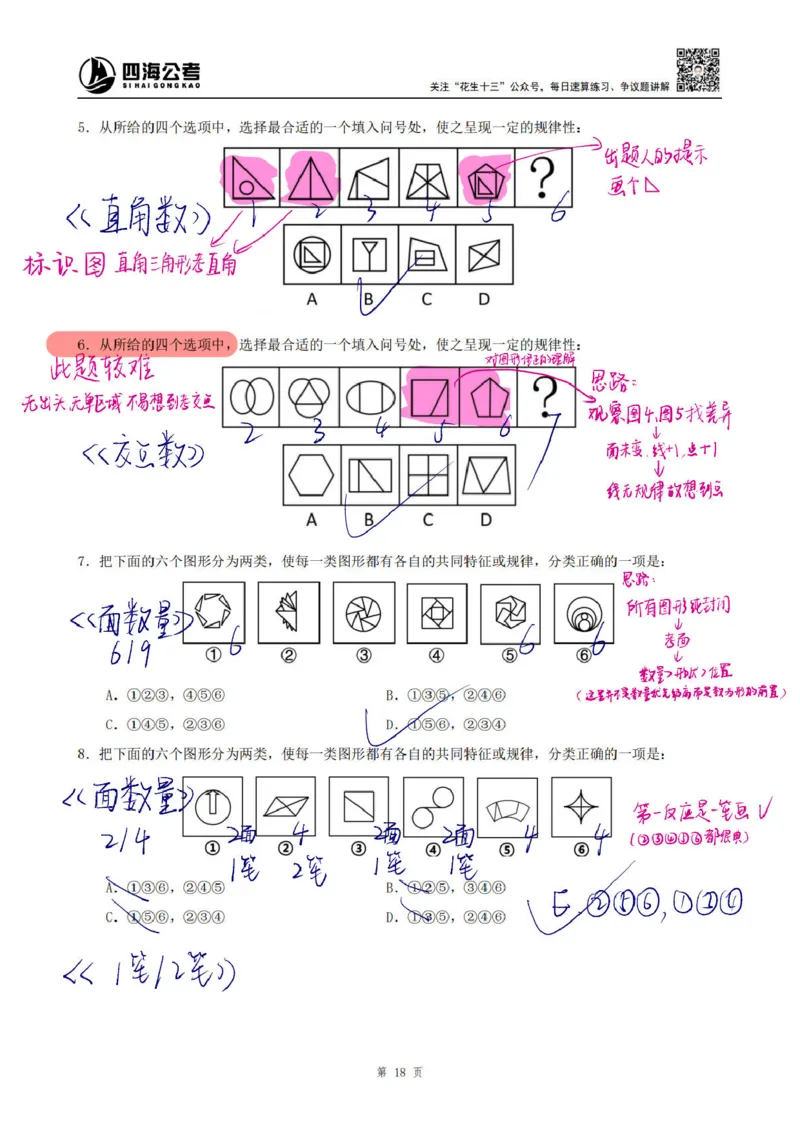 四海公考
SI HAI GONG KAO
关注“花生十三”公众号，每日速算练习、争议题讲解
5．从所给的四个选项中，选择最合适的一个填入问号处，使之呈现一定的规律性：
出题人的提示
画个
?
1 2 3 4 5 6
<<直角数>>
标识图 直角三角形考直角
A B C D
6．从所给的四个选项中，选择最合适的一个填入问号处，使之呈现一定的规律性：
此题较难
无出头,无单区域 不易想到考交点
思路：
观察图4,图5找差异
?
2 3 4 5 6 7
面未变,线+1,点+1
线无规律 故想到点
<<交点数>>
A B C D
7．把下面的六个图形分为两类，使每一类图形都有各自的共同特征或规律，分类正确的一项是：
思路：
所有图形纯封闭
考面
数量>形状>位置
<<面数量>>
6/9
6 6 6
① ② ③ ④ ⑤ ⑥
A．①②③，④⑤⑥
B．①③⑤，②④⑥
C．①④⑤，②③⑥
D．①⑤⑥，②③④
8．把下面的六个图形分为两类，使每一类图形都有各自的共同特征或规律，分类正确的一项是：
<<面数量>>
2/4
第一反应是一笔画
2面 4 2面 2面 4 4
① ② ③ ④ ⑤ ⑥
1笔 2笔 1笔 1笔
A．①③⑥，②④⑤
B．①②⑤，③④⑥
C．①⑤⑥，②③④
D．①③⑤，②④⑥
E. ②⑤⑥,①③④
<<1笔/2笔>>
第 18 页